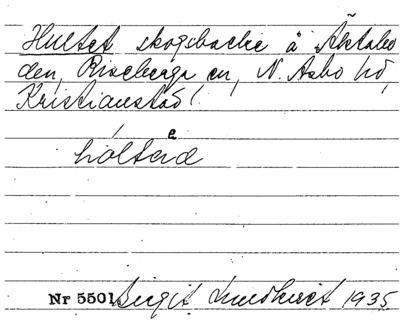 Hultet skogsbacke å Äktabo
den, Riseberga sn, N. Åsbo hd,
Kristianstad l.
hòltəd
Nr 5501 Birgit Lundkvist 1935